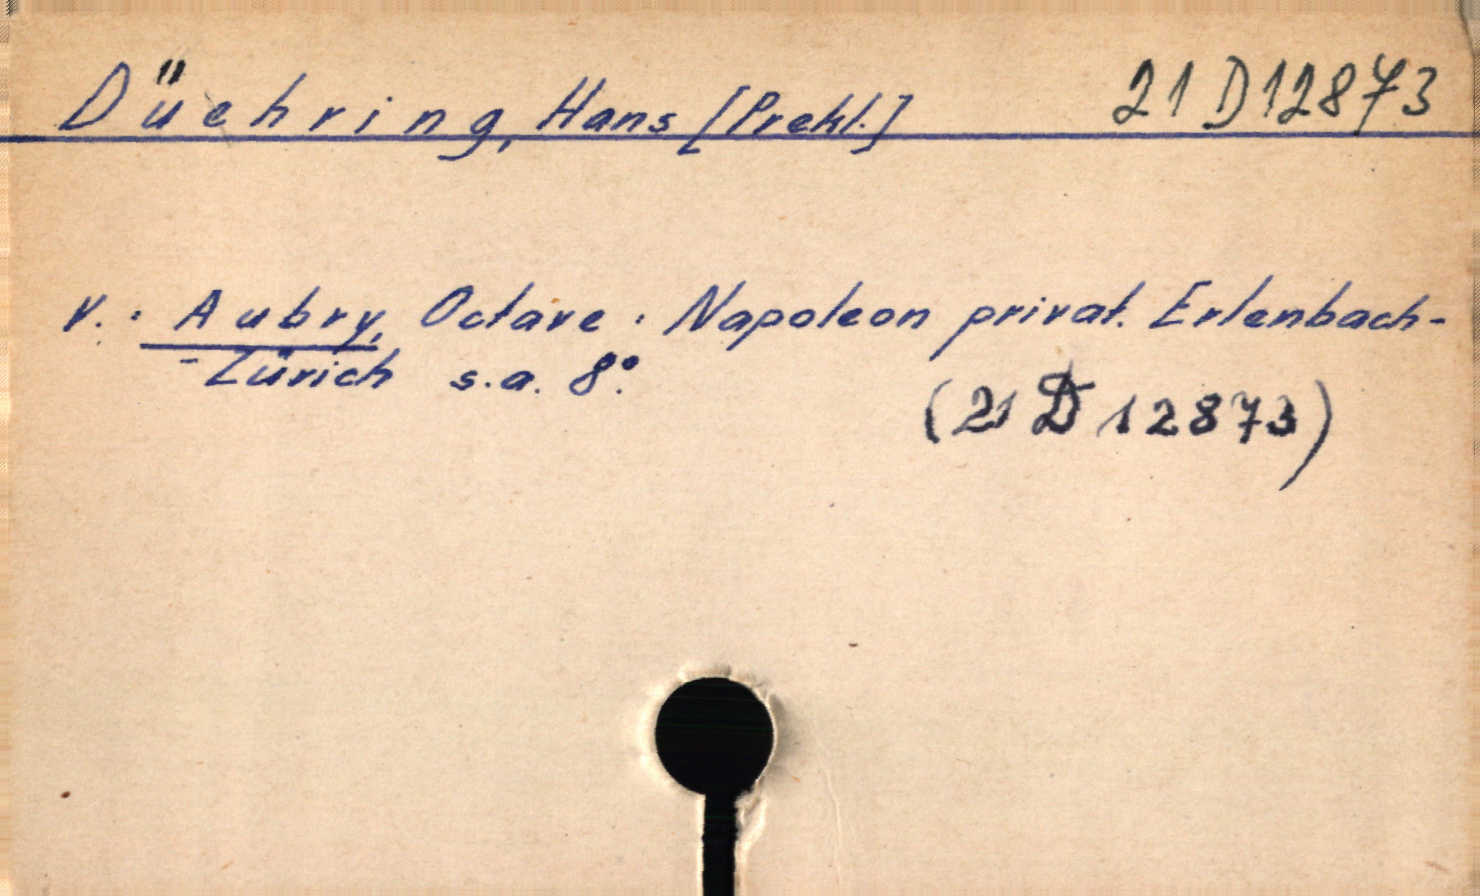 Düehring, Hans [Prekl.] 21 D 12873
v.: Aubry, Octave: Napoleon privat. Erlenbach-
-Zürich s.a. 8°.
(21 D 12873)